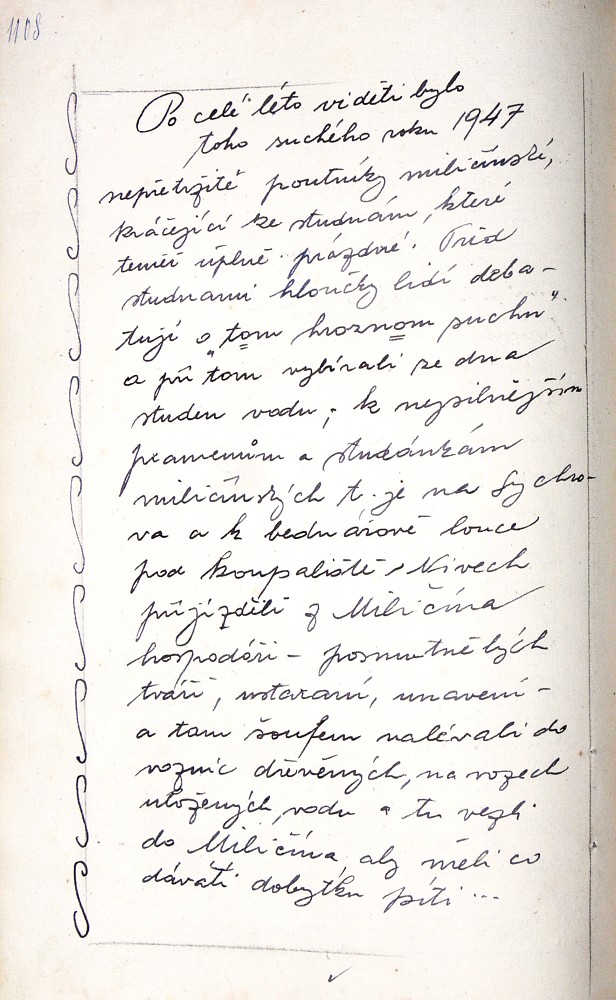 1108
Po celé léto viděti bylo
toho suchého roku 1947
nepřetržité poutníky miličínské,
kráčející ke studnám, které
téměř úplně prázdné. Před
studnami hloučky lidí deba-
tují o "tom hroznom suchu"
a při "tom vybírali ze dna
studen vodu; k nejsilnějším
pramenům a studánkám
miličínských t. je na Sychro-
va a k bednářově louce
pod koupaliště v Nivech
přijížděli z Miličína
hospodáři - posmutnělých
tváří, ustaraní, unavení -
a tam šoufem nalévali do
voznic dřevěných, na vozech
uložených, vodu a tu vezli
do Miličína, aby měli co
dávati dobytku píti...